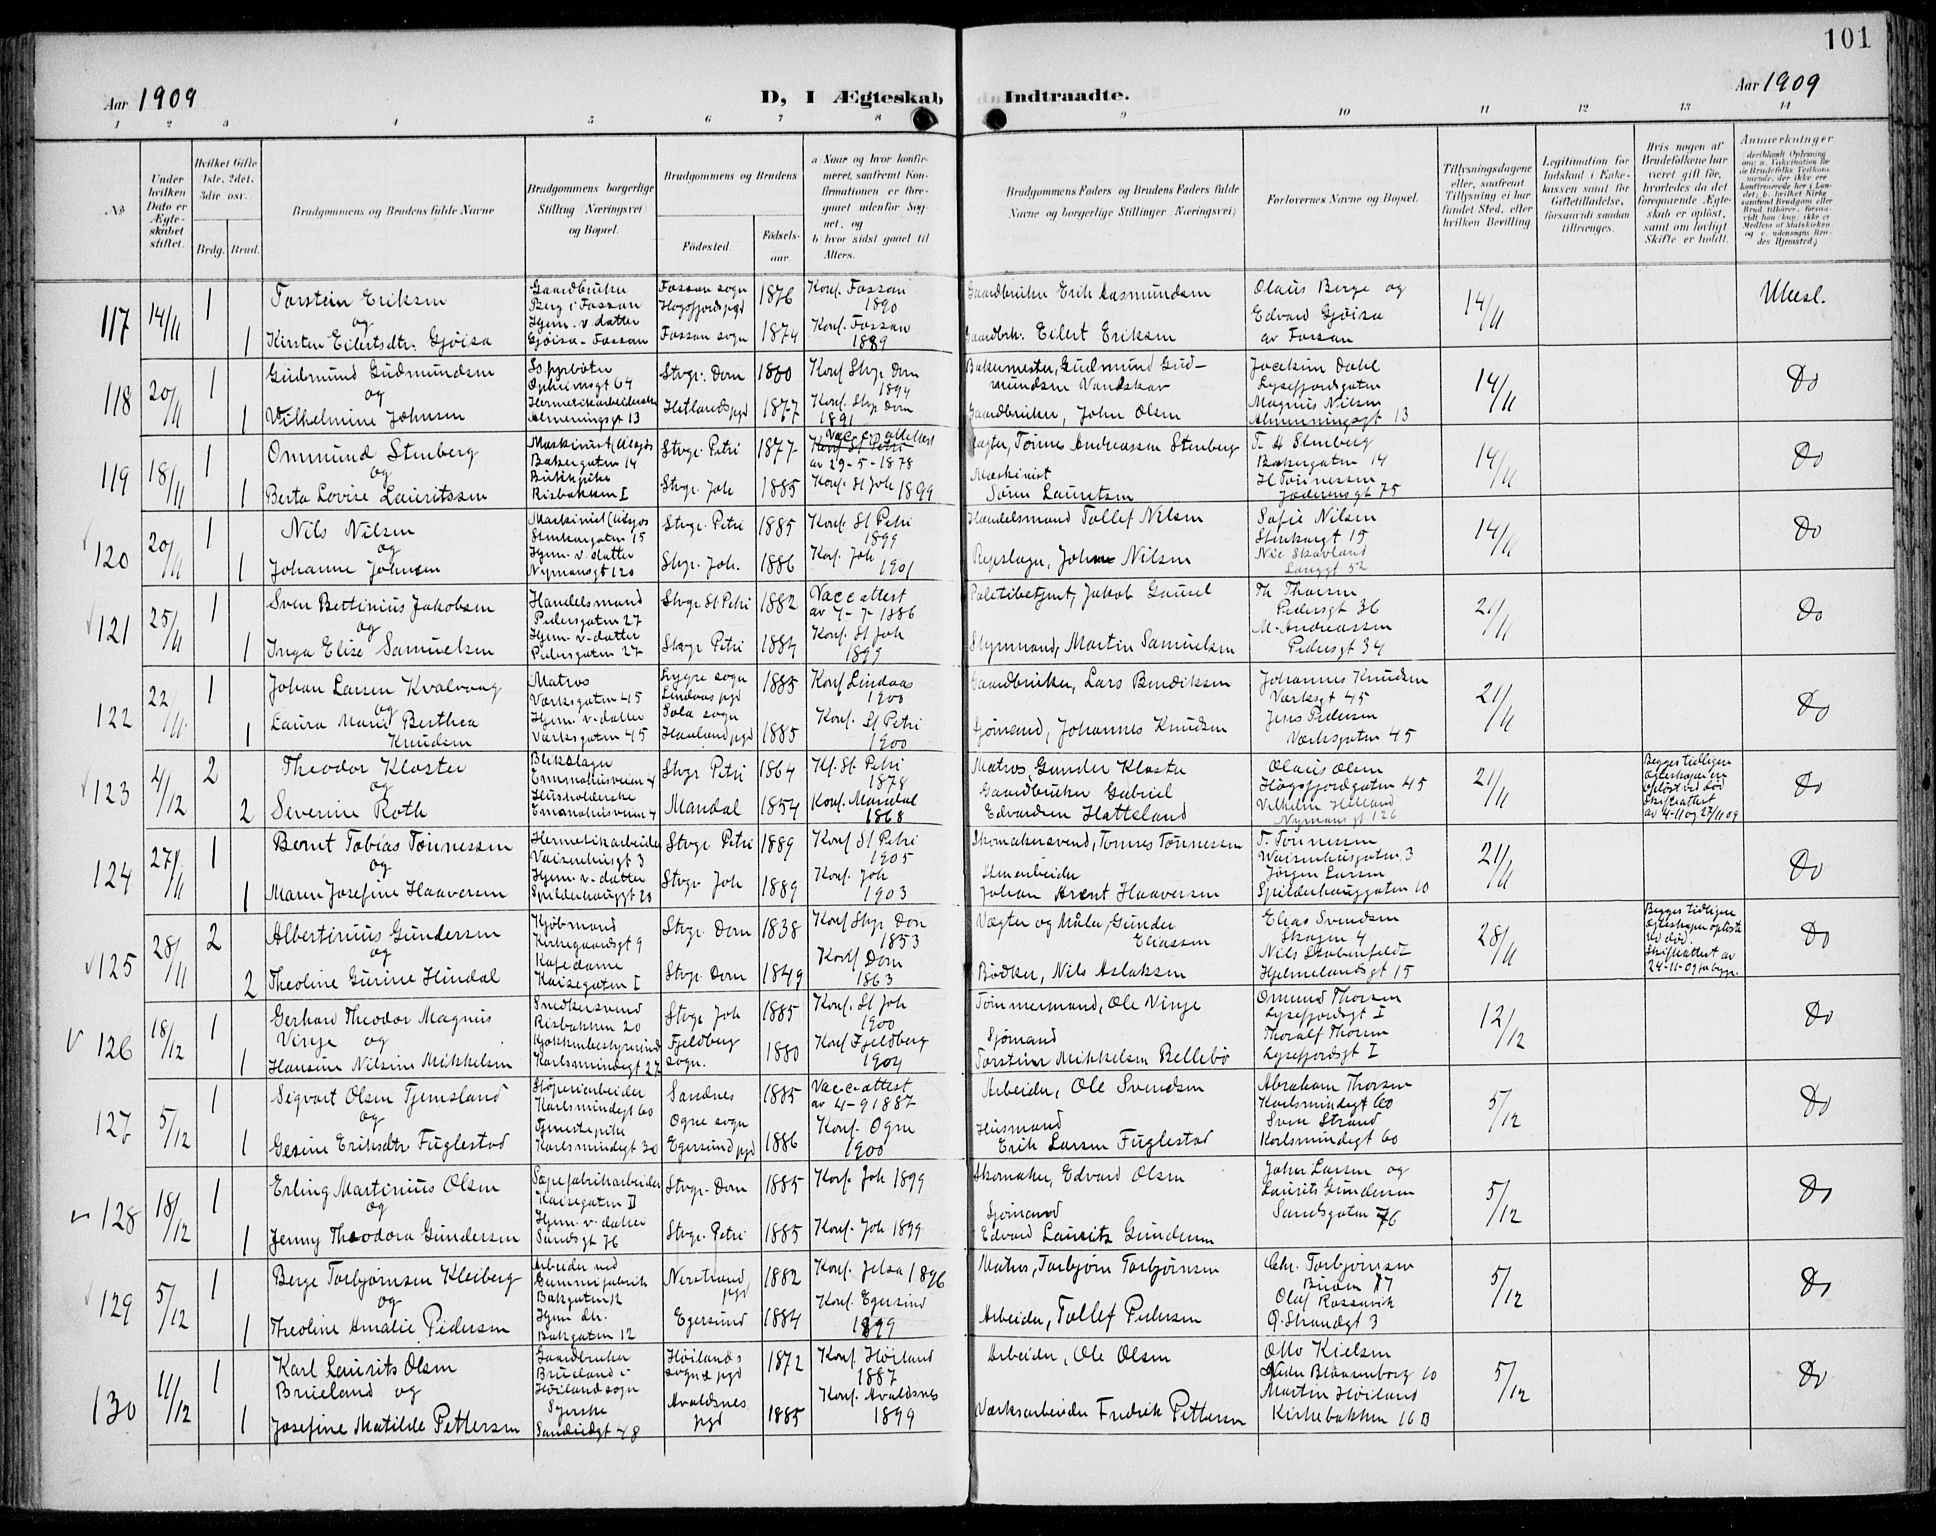 101
Aar 1909
D, I Ægteskab Indtraadte.
Aar 1909
1 2 3 4 5 6 7 8 9 10 11 12 13 14
№
Under hvilken Dato er Ægteskabet stiftet.
Hvilket Gifte 1ste, 2det, 3die osv.
Brdg. Brud.
Brudgommens og Brudens fulde Navne
Brudgommens borgerlige Stilling Næringsvei og Bopæl.
Brudgommens og Brudens
Fødested.
Fødselsaar.
a. Naar og hvor konfirmeret, saafremt Konfirmationen er foregaaet udenfor Sognet, og
b. hvor sidst gaaet til Alters.
Brudgommens Faders og Brudens Faders fulde Navne og borgerlige Stillinger Næringsvei)
Forlovernes Navne og Bopæl.
Tillysningsdagene eller, saafremt Tillysning ei har fundet Sted, efter hvilken Bevilling.
Legitimation for Indskud i Enkekassen samt for Giftetilladelse, forsaavidt saadan tiltrænges.
Hvis nogen af Brudefolkene har været gift før, hvorledes da det foregaaende Ægteskab er opløst, samt om lovligt Skifte er holdt.
Anmerkninger
117 14/11 1
Torstein Eriksen
og
1 Kirsten Eilertsdtr. Gjöisa
Gaardbruker
Berg i Fossan
Hjem. v. datter
Gjöisa - Fossan
Fossan sogn
Høgsfjord pgd
Fossan sogn
1876
1874
Konf. Fossan
1890
Konf. Fossan
1889
Gaardbruker Erik Aasmundsen
Gaardbr. Eilert Eriksen
Olaus Berge og
Edvard Gjöisa
av Fossan
14/11
118 20/11 1
Gudmund Gudmundsen
og
1 Vilhelmine Johnsen
Opheimsgt 64
Hermetikarbeiderske
Almeningsgt 13
Stvgr. Dom
Hetlands pgd
1877
Konf Stvgr Dom
1894
Konf. Stvgr Dom
1891
Bakermester, Gudmund Gudmundsen Vandskar
Gaardbruker, John Olsen
Joachim Dahl
Lysefjordgaten
Magnus Nilsen
Almenningsgt 13
14/11
Do
119 18/11 1
Ommund Stenberg
og
1 Berta Lovise Lauritssen
Bakergaten 14
Butikpike
Risbakken I
Stvgr. Petri
Stvgr. Joh
1877
1885
Vacc. attest
Konf St Petri
av 29-5-1878
Konf. St Joh 1899
Vægter, Tönnes Andreassen Stenberg
Maskinist
Sören Lauritsen
T. A Stenberg
Bakergaten 14
H Tönnessen
Jæderensgt 75
14/11
Do
120 20/11 1
Nils Nilsen
og
1 Johanne Johnsen
Stenkargaten 15
Hjem. v. datter
Nymansgt 120
Stvgr. Petri
Stvgr. Joh.
1885
1886
Konf. St Petri
1899
Konf. Joh
1901
Handelsmand Tollef Nilsen
Repslager, John Nilsen
Sofie Nilsen
Stenkargt 15
Nic Skavland
Langgt 52
14/11
Do
121 25/11 1
Sven Bertinius Jakobsen
og
1 Inga Elise Samuelsen
Handelsmand
Pedersgaten 27
Hjem. v. datter
Pedersgaten 27
Stvgr St Petri
Stvgr Petri
1882
1884
Vacc attest
av 7-7-1886
Konf. St Joh
1899
Politibetjent, Jakob Gausel
Styrmand, Martin Samuelsen
Th Thorsen
Pedersgt 36
M. Andreassen
Pedersgt 34
21/11
Do
122 22/11 1
Johan Larsen Kvalvaag
og
1 Laura Marie Berthea
Knudsen
Matros
Verksgaten 45
Hjem. v. datter
Værksgaten 45
Lygre sogn
Lindaas pgd
Sola sogn
Haaland pgd
1885
1885
Konf Lindaas
1900
Konf. St Petri
1900
Gaardbruker, Lars Bendiksen
Sjömand, Johannes Knudsen
Johannes Knudsen
Værksgt 45
Jens Pedersen
Værksgaten 45
21/11
Do
123 4/12 2
Theodor Kloster
og
2 Severine Roth
Blikslager
Emmahusveien 4
Husholderske
Emmahusveien 4
Stvgr Petri
Mandal
1864
1854
Kf. St Petri
1878
Konf. Mandal
1868
Matros, Gunder Kloster
Gaardbruker Gabriel
Edvardsen Hatteland
Olaus Olsen
Høgsfjordgaten 45
Vilhelm Helland
Nymansgt 126
21/11
Begges tidligere
egteskaper er
oplöst ved död
Skifteattest
av 4-11 og 27/11 09
Do
124 27/11 1
Bernt Tobias Tönnessen
og
1 Maren Josefine Haaversen
Hermetikarbeider
Vaisenhusgt 3
Hjem. v. datter
Spilderhauggt 20
Stvgr Petri
Stvgr Joh
1889
1889
Konf St Petri
1905
Konf. Joh
1903
Skomakersvend, Tönnes Tönnessen
Stenarbeider
Johan Arent Haaversen
T. Tönnessen
Waisenhusgaten 3
Jörgen Larsen
Spilderhauggaten 10
21/11
Do
125 28/11 2
Albertinius Gundersen
og
2 Theoline Gurine Hindal
Kjöbmand
Kirkegaardsgt 9
Kafedame
Kaisegaten I
Stvgr. Dom
Stvgr. Dom
1838
1849
Konf Stvgr Dom
1853
Konf Dom
1863
Vægter og Maler, Gunder
Eliassen
Bödker, Nils Aslaksen
Elias Svendsen
Skagen 4
Nils Stabenfeldt
Hjelmelandsgt 15
28/11
Begges tidligere
egteskaper oplöste
ved död.
Skifteattest av
24-11-09
Do
126 18/12 1
Gerhard Theodor Magnus
Vinje og
1 Hansine Nilsine Mikkelsen
Snedkersvend
Risbakken 20
Kjøkkenbestyrerinde
Karlsmindegt 27
Stvgr Joh
Fjeldberg
sogn.
1885
1880
Konf. St Joh
1900
Konf Fjeldberg
1904
Tömmermand, Ole Vinje
Sjömand
Torstein Mikkelsen Bellebö
Omund Thorsen
Lysefjordsgt I
Thoralf Thorsen
Lysefjordsgt I
12/12
Do
127 5/12 1
Sigvart Olsen Tjemsland
og
1 Gesine Eriksdtr Fuglestad
Støperiarbeider
Karlsmindegt 60
Tjenestepike
Karlsmindegt 30
Sandnes
Ogne sogn
Egersund pgd
1885
1886
Vacc-attest
av 4-9 1887
Konf. Ogne
1900
Arbeider, Ole Svendsen
Husmand
Erik Larsen Fuglestad
Abraham Thorsen
Karlsmindegt 60
Sven Strand
Karlsmindegt 60
5/12
Do
128 18/12 1
Erling Martinius Olsen
og
1 Jenny Theodora Gundersen
Sæpefabrikarbeider
Kaisegaten II
Hjem. v. datter
Sandsgt 76
Stvgr. Dom
Stvgr. Petri
1885
1885
Konf. Joh 1899
Konf. Joh 1899
Skomaker, Edvard Olsen
Sjömand
Edvard Laurits Gundersen
John Larsen og
Laurits Gundersen
Sandsgaten 76
5/12
Do
129 5/12 1
Berge Torbjørnsen Kleiberg
og
1 Theoline Amalie Pedersen
Arbeider ved
Gummifabrik
Bakgaten 12
Hjem dtr.
Bakgaten 12
Nerstrand
pgd
Egersund
1882
1884
Konf. Jelsa 1896
Konf. Egersund
1899
Matros, Torbjørn Torbjørnsen
Arbeider, Tollef Pedersen
Chr. Torbjørnsen
Olaf Rossavik
Ø. Strandgt 3
5/12
Do
130 11/12 1
Karl Laurits Olsen
Brueland og
1 Josefine Matilde Pettersen
Gaardbruker
Brueland i
Höiland sogn
Syerske
Sandeidgt 48
Höilands
sogn & pgd
Avaldsnes
pgd
1872
1885
Konf. Höiland
1887
Konf. Avaldsnes
1899
Arbeider, Ole Olsen
Værksarbeider Fredrik Pettersen
Otto Kielsen
Nedre Blaasenborg 10
Martin Höiland
Kirkebakken 16 B
5/12
Do